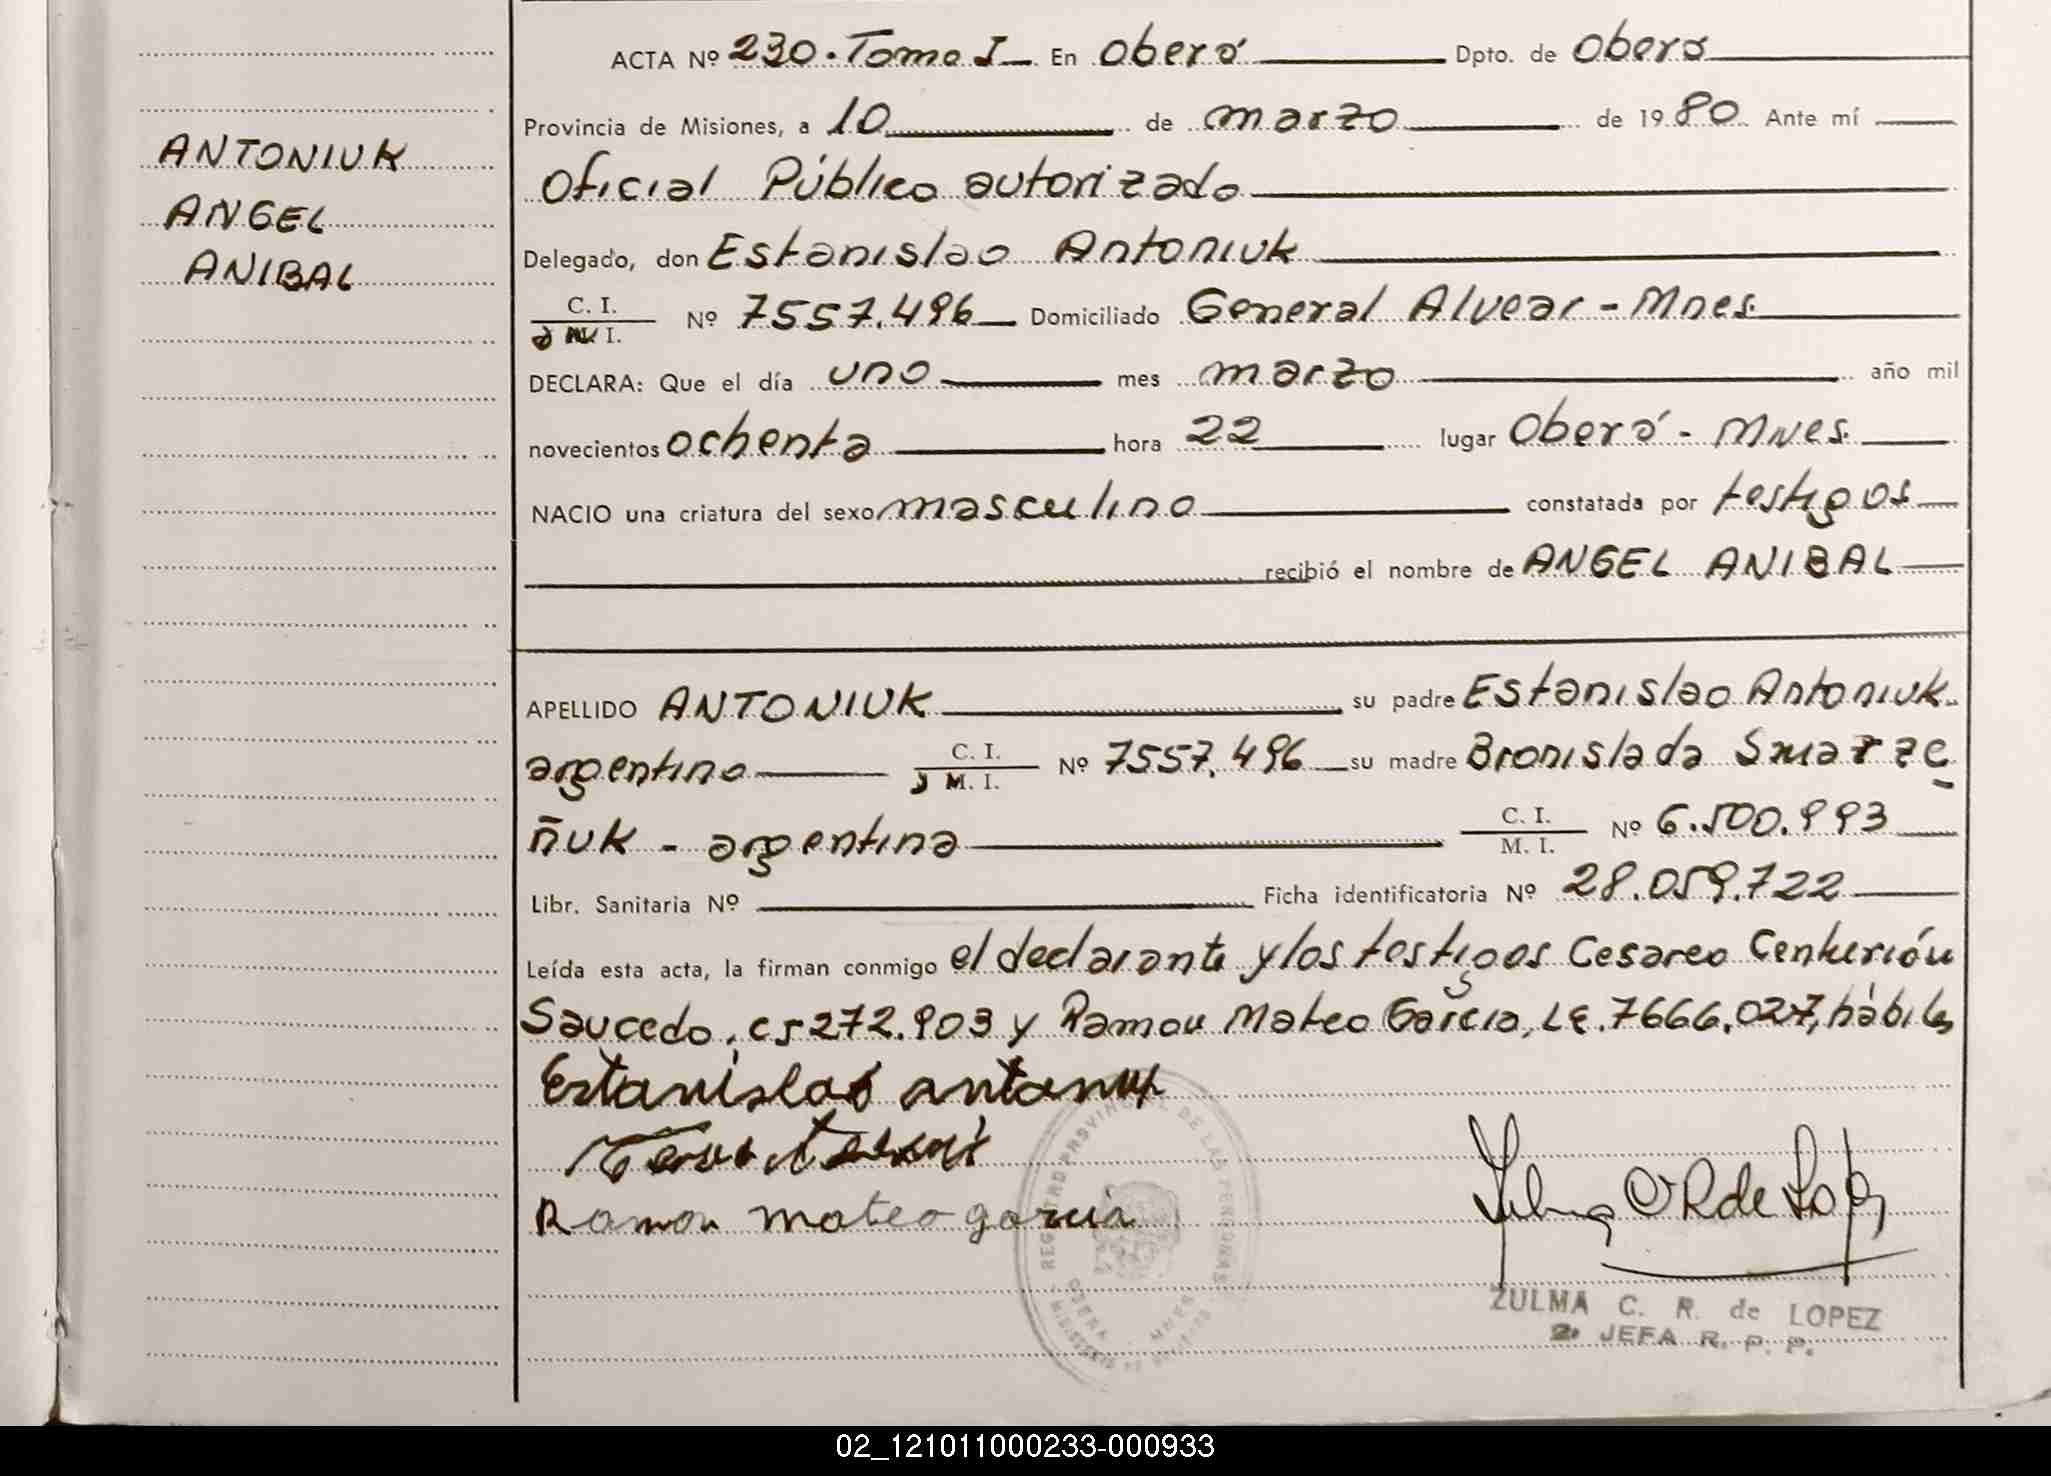 ACTA Nº 230. Tomo I En Oberá Dpto. de Oberá
Provincia de Misiones, a 10 de marzo de 1980 Ante mí
ANTONIUK
Oficial Público autorizado
ANGEL
Delegado, don Estanislao Antoniuk
ANIBAL
C. I.
ó M. I. Nº 7557.496 Domiciliado General Alvear - Mnes.
DECLARA: Que el día uno mes marzo año mil
novecientos ochenta hora 22 lugar Oberá - Mnes.
NACIO una criatura del sexo masculino constatada por testigos
recibió el nombre de ANGEL ANIBAL
APELLIDO ANTONIUK su padre Estanislao Antoniuk
argentino C. I. M. I. Nº 7557.496 su madre Bronislada Smarze
ñuk - argentina C. I. M. I. Nº 6.500.993
Libr. Sanitaria Nº Ficha identificatoria Nº 28.059.722
Leída esta acta, la firman conmigo el declarante y los testigos Cesareo Centurión
Saucedo, C 5272.903 y Ramon Mateo Garcia, LE. 7666.027, hábiles
Estanislao antoniuk
Ramon mateo garcia
REGISTRO PROVINCIAL DE LAS PERSONAS
OBERA MNES
Zulma C R de Lopez
ZULMA C. R. de LOPEZ
2ª JEFA R. P. P.
02_121011000233-000933